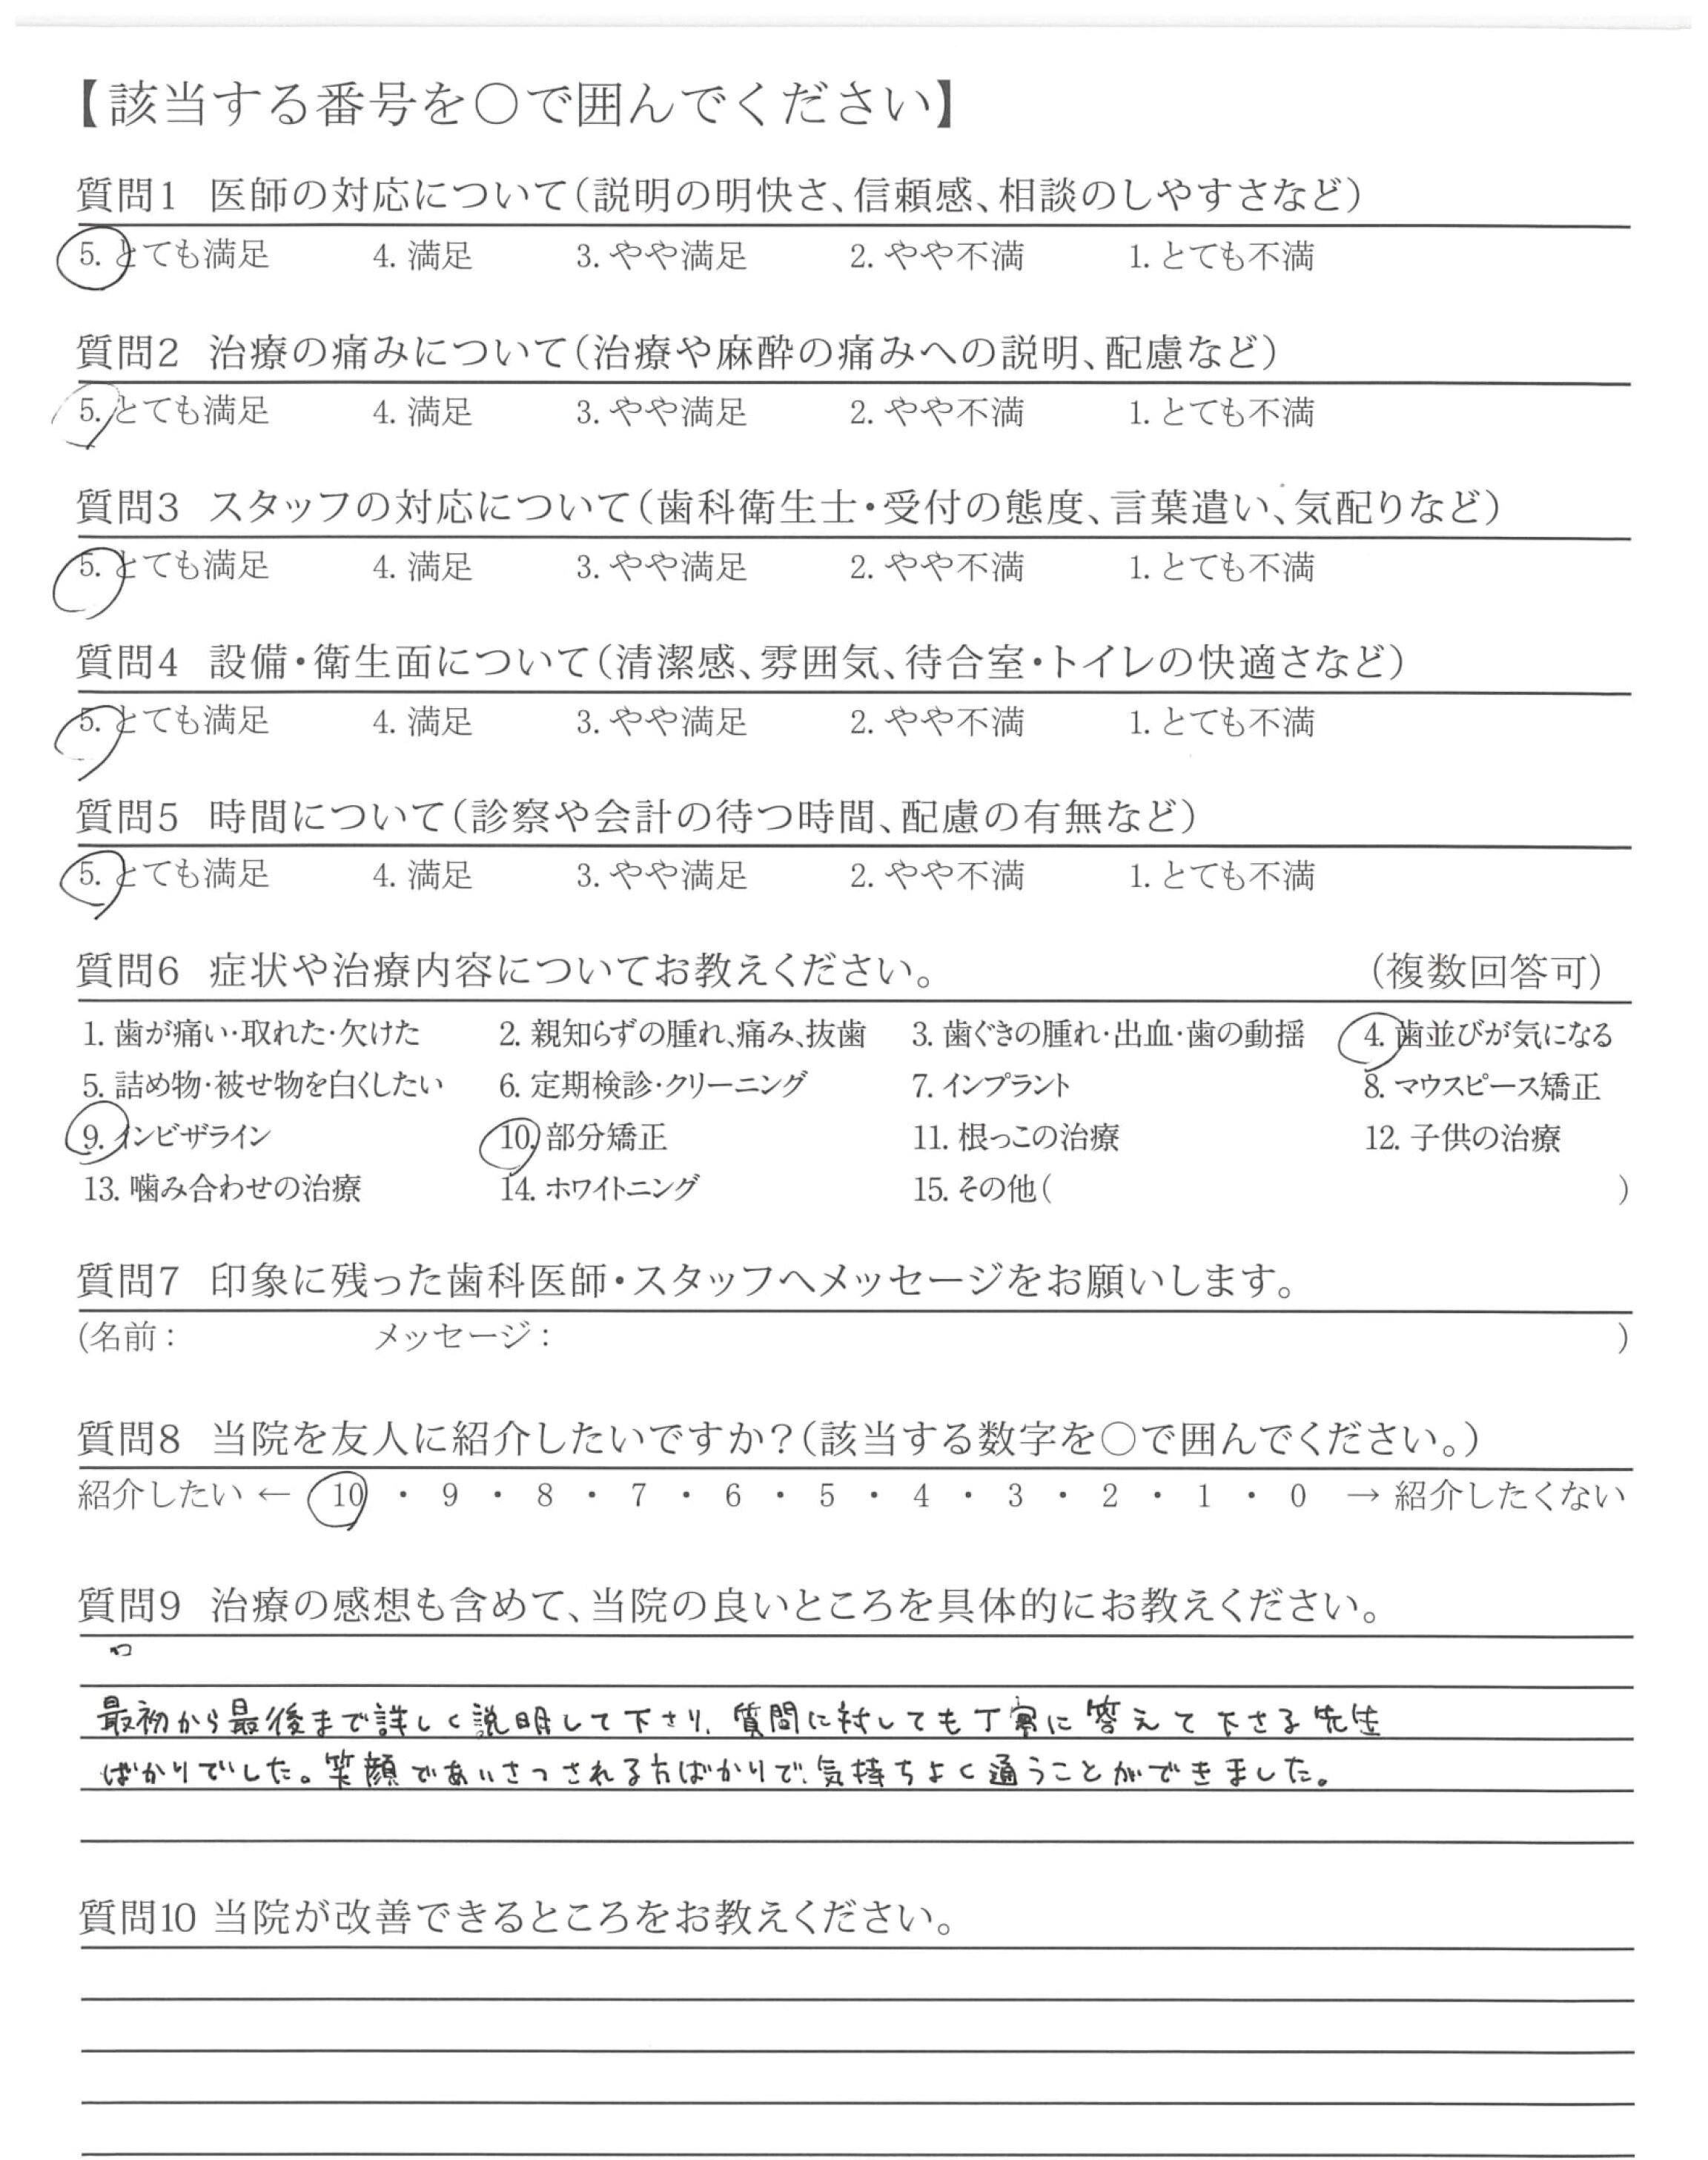 【該当する番号を○で囲んでください】
質問1 医師の対応について（説明の明快さ、信頼感、相談のしやすさなど）
5. とても満足 4. 満足 3. やや満足 2. やや不満 1. とても不満
質問2 治療の痛みについて（治療や麻酔の痛みへの説明、配慮など）
5. とても満足 4. 満足 3. やや満足 2. やや不満 1. とても不満
質問3 スタッフの対応について（歯科衛生士・受付の態度、言葉遣い、気配りなど）
5. とても満足 4. 満足 3. やや満足 2. やや不満 1. とても不満
質問4 設備・衛生面について（清潔感、雰囲気、待合室・トイレの快適さなど）
5. とても満足 4. 満足 3. やや満足 2. やや不満 1. とても不満
質問5 時間について（診察や会計の待つ時間、配慮の有無など）
5. とても満足 4. 満足 3. やや満足 2. やや不満 1. とても不満
質問6 症状や治療内容についてお教えください。 （複数回答可）
1. 歯が痛い・取れた・欠けた 2. 親知らずの腫れ、痛み、抜歯 3. 歯ぐきの腫れ・出血・歯の動揺 4. 歯並びが気になる
5. 詰め物・被せ物を白くしたい 6. 定期検診・クリーニング 7. インプラント 8. マウスピース矯正
9. インビザライン 10. 部分矯正 11. 根っこの治療 12. 子供の治療
13. 噛み合わせの治療 14. ホワイトニング 15. その他（ ）
質問7 印象に残った歯科医師・スタッフへメッセージをお願いします。
（名前： メッセージ： ）
質問8 当院を友人に紹介したいですか？（該当する数字を○で囲んでください。）
紹介したい ← 10 ・ 9 ・ 8 ・ 7 ・ 6 ・ 5 ・ 4 ・ 3 ・ 2 ・ 1 ・ 0 → 紹介したくない
質問9 治療の感想も含めて、当院の良いところを具体的にお教えください。
最初から最後まで詳しく説明して下さり、質問に対しても丁寧に答えて下さる先生
ばかりでした。笑顔であいさつされる方ばかりで、気持ちよく通うことができました。
質問10 当院が改善できるところをお教えください。